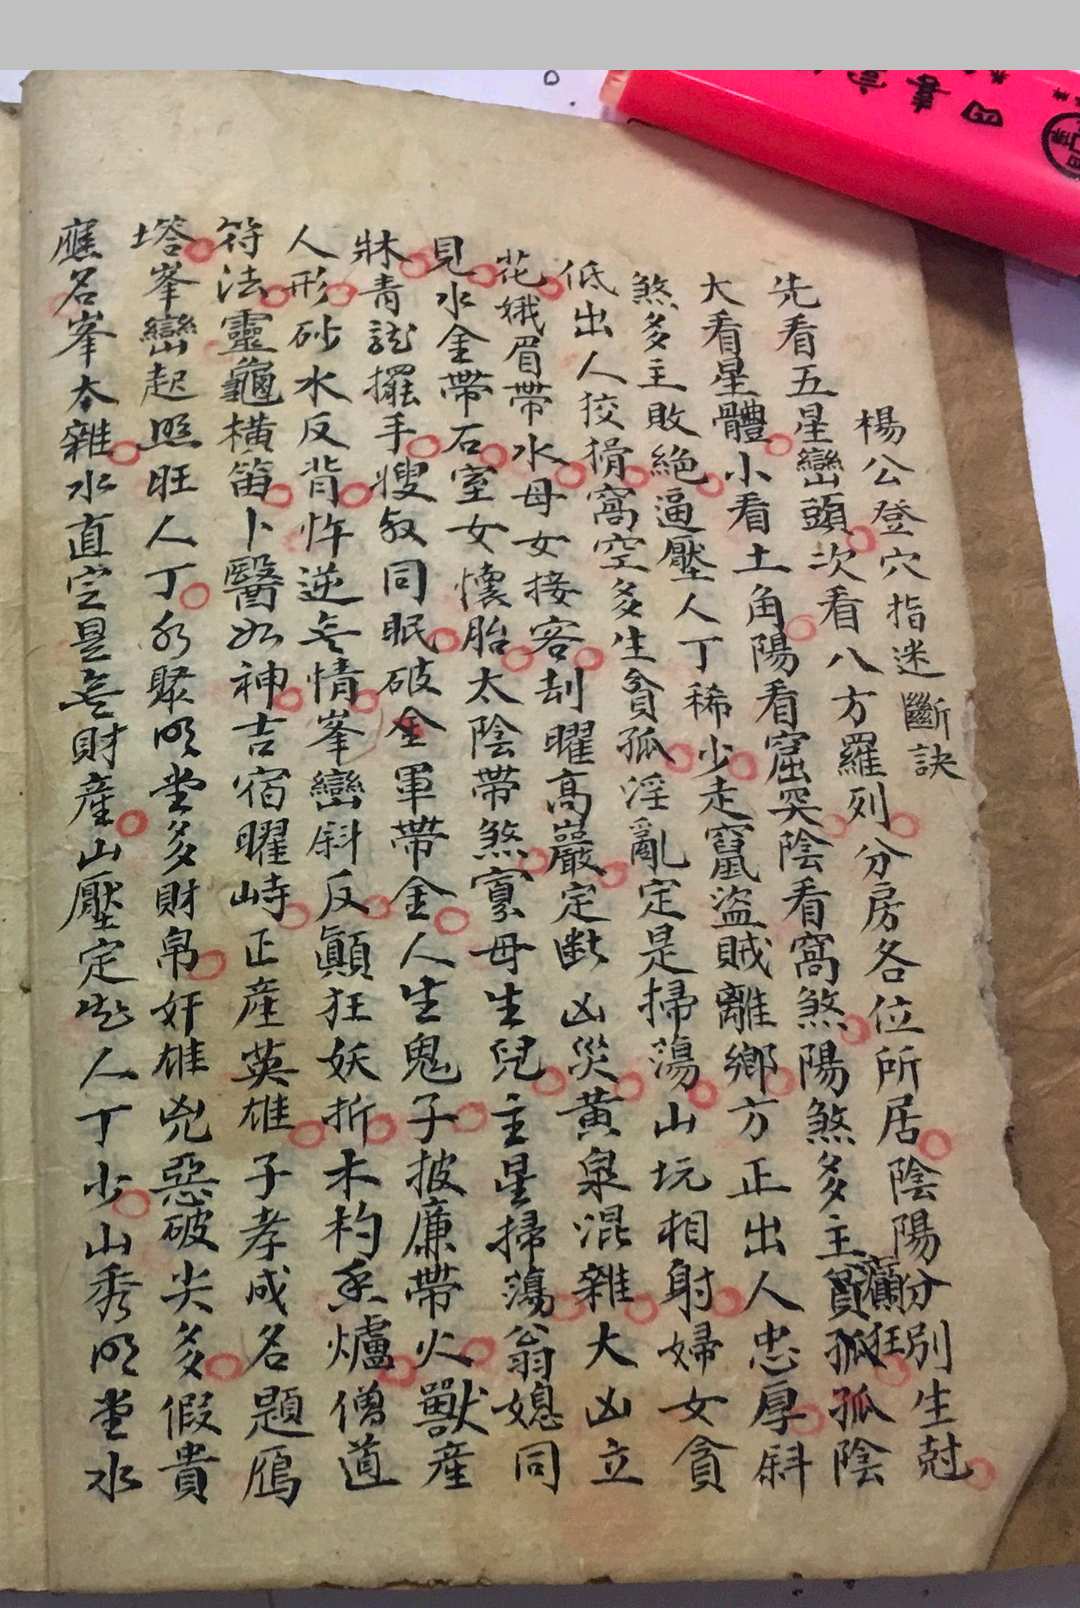 楊公登穴指迷斷訣
先看五星巒頭次看八方羅列分房各位所居陰陽分別生尅
大看星體小看土角陽看窟突陰看窩煞陽煞多主孤孤陰
煞多主敗絕逼壓人丁稀少走竄盜賊離鄉方正出人忠厚斜
低出人狡猾窩空多生貧孤淫亂定是掃蕩山坑相射婦女貪
花娥眉帶水母女接客刦曜高巖定断凶災黃泉混雜大凶立
見水金帶石室女懷胎太陰帶煞寡母生兒主星掃蕩翁媳同
牀青龍擺手嫂叔同眠破金軍帶金人生鬼子披廉帶火獸產
人形砂水反背忤逆无情峯巒斜反顚狂妖折木杓香爐僧道
符法靈龜橫笛卜醫如神吉宿曜峙正產英雄子孝成名題鴈
塔峯巒起照旺人丁水聚明堂多財帛奸雄兇惡破尖多假貴
應名峯太雜水直定是无財產山壓定些人丁少山秀明堂水
四書